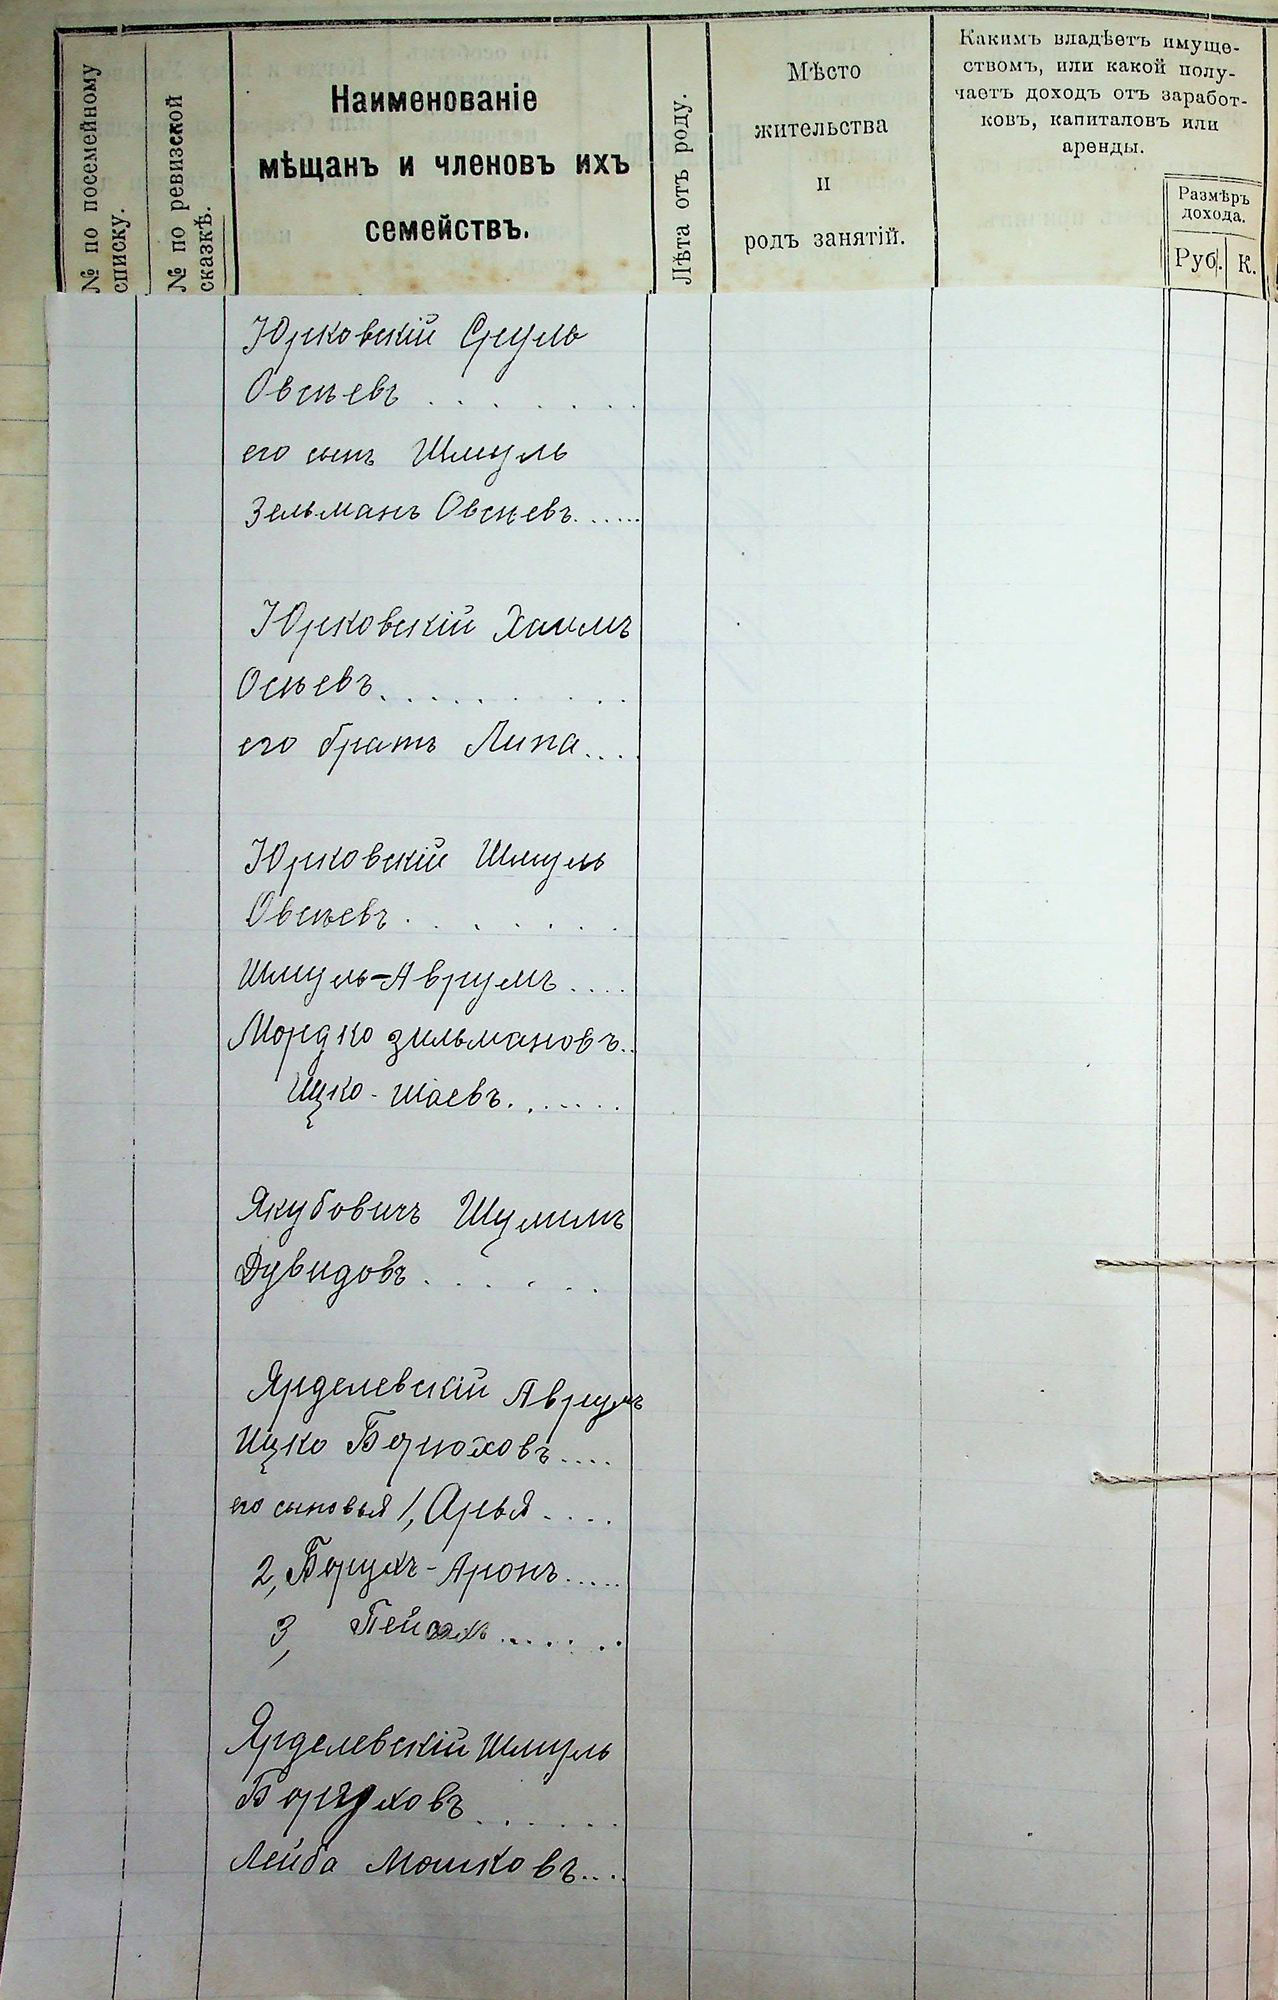 № по посемейному
списку.
№ по ревизской
сказкѣ.
Наименованіе
мѣщанъ и членовъ ихъ
семействъ.
Лѣта отъ роду.
Мѣсто
жительства
и
родъ занятій.
Какимъ владѣетъ имуще-
ствомъ, или какой полу-
чаетъ доходъ отъ заработ-
ковъ, капиталовъ или
аренды.
Размѣръ
дохода.
Руб. К.
Юрковскій Сруль
Овсѣевъ . . . . . .
его сынъ Шмуль
Зельманъ Овсѣевъ......
Юрковскій Хаимъ
Осѣевъ . . . . . . . .
его братъ Липа....
Юрковскій Шмуль
Овсѣевъ . . . . . . .
Шмуль-Аврумъ ....
Мордко Зильмановъ..
Ицко-Шаевъ.......
Якубовичъ Шулимъ
Дувидовъ . . . . . .
Ярделевскій Аврумъ
Ицко Борюховъ....
его сыновья 1, Арья ....
2, Борухъ-Аронъ.....
3, Пейсахъ .......
Ярделевскій Шмуль
Боруховъ . . . . . .
Лейба Мошковъ....